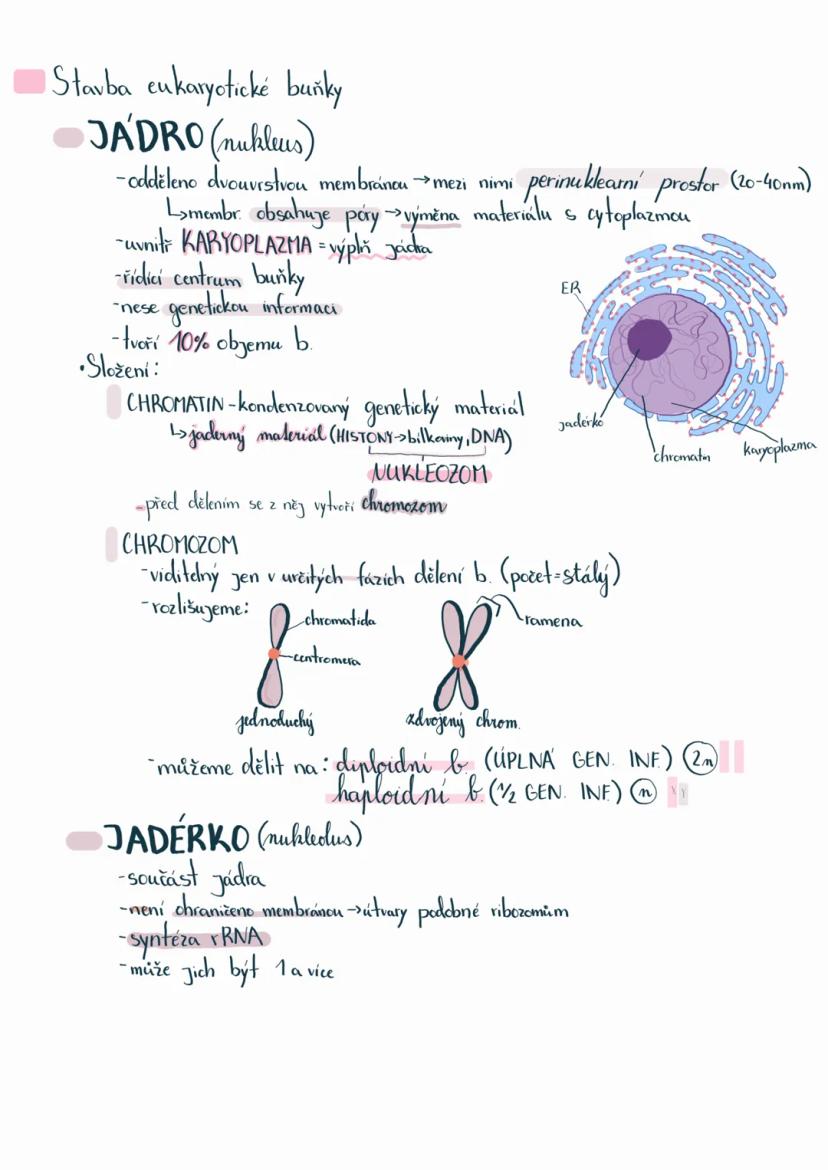 Stavba eukaryotické buňky
JÁDRO (nukleus)
-odděleno dvouvrstvou membránou → mezi nimi perinukleární prostor (20-40nm)
↳membr. obsahuje póry → výměna materiálu s cytoplazmou
-uvnitř KARYOPLAZMA = výplň jádra
-řídící centrum buňky
-nese genetickou informaci
-tvoří 10% objemu b.
•Složení:
ER
jadérko
chromatin
karyoplazma
CHROMATIN - kondenzovaný genetický materiál
↳jaderný materiál (HISTONY→bílkoviny, DNA)
NUKLEOZOM
-před dělením se z něj vytvoří chromozom
CHROMOZOM
-viditelný jen v určitých fázích dělení b. (počet=stálý)
-rozlišujeme:
chromatida
centromera
ramena
jednoduchý
zdvojený chrom.
-můžeme dělit na: diploidní b. (ÚPLNÁ GEN. INF.) 2n
haploidní b. (1/2 GEN. INF.) n
JADÉRKO (nukleolus)
-součást jádra
-není ohraničeno membránou → útvary podobné ribozomům
-syntéza rRNA
-může jich být 1 a více